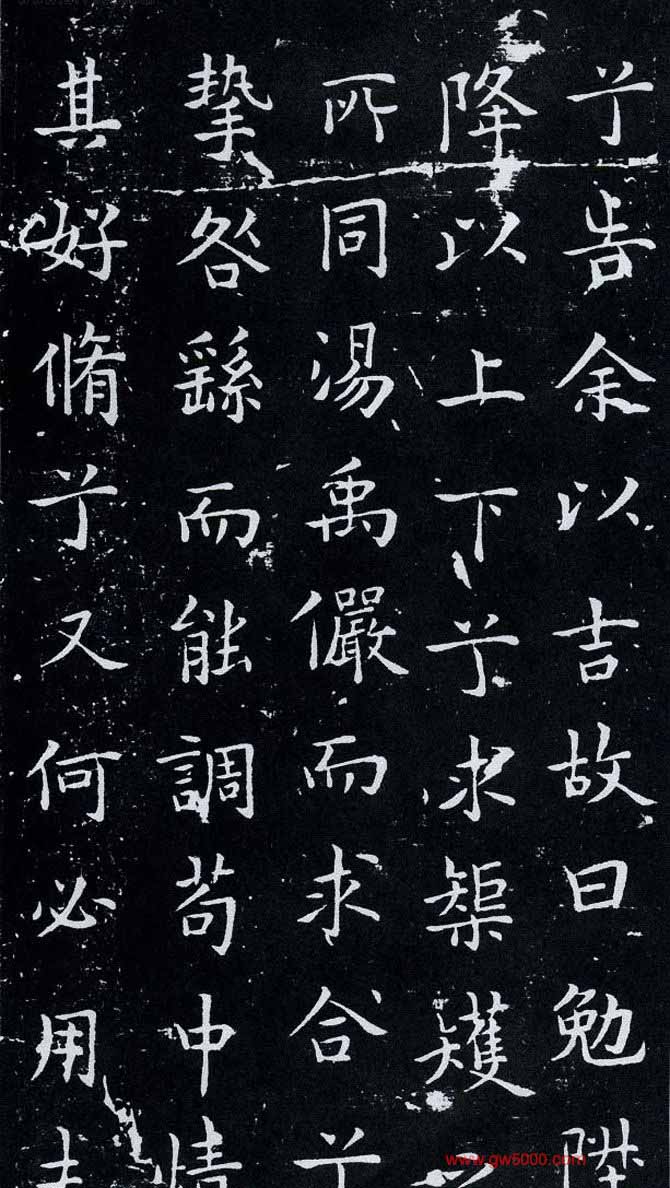 兮告余以吉故曰勉陞
降以上下兮求榘矱之
所同湯禹儼而求合兮
摯咎繇而能調苟中情
其好脩兮又何必用夫
www.gw5000.com